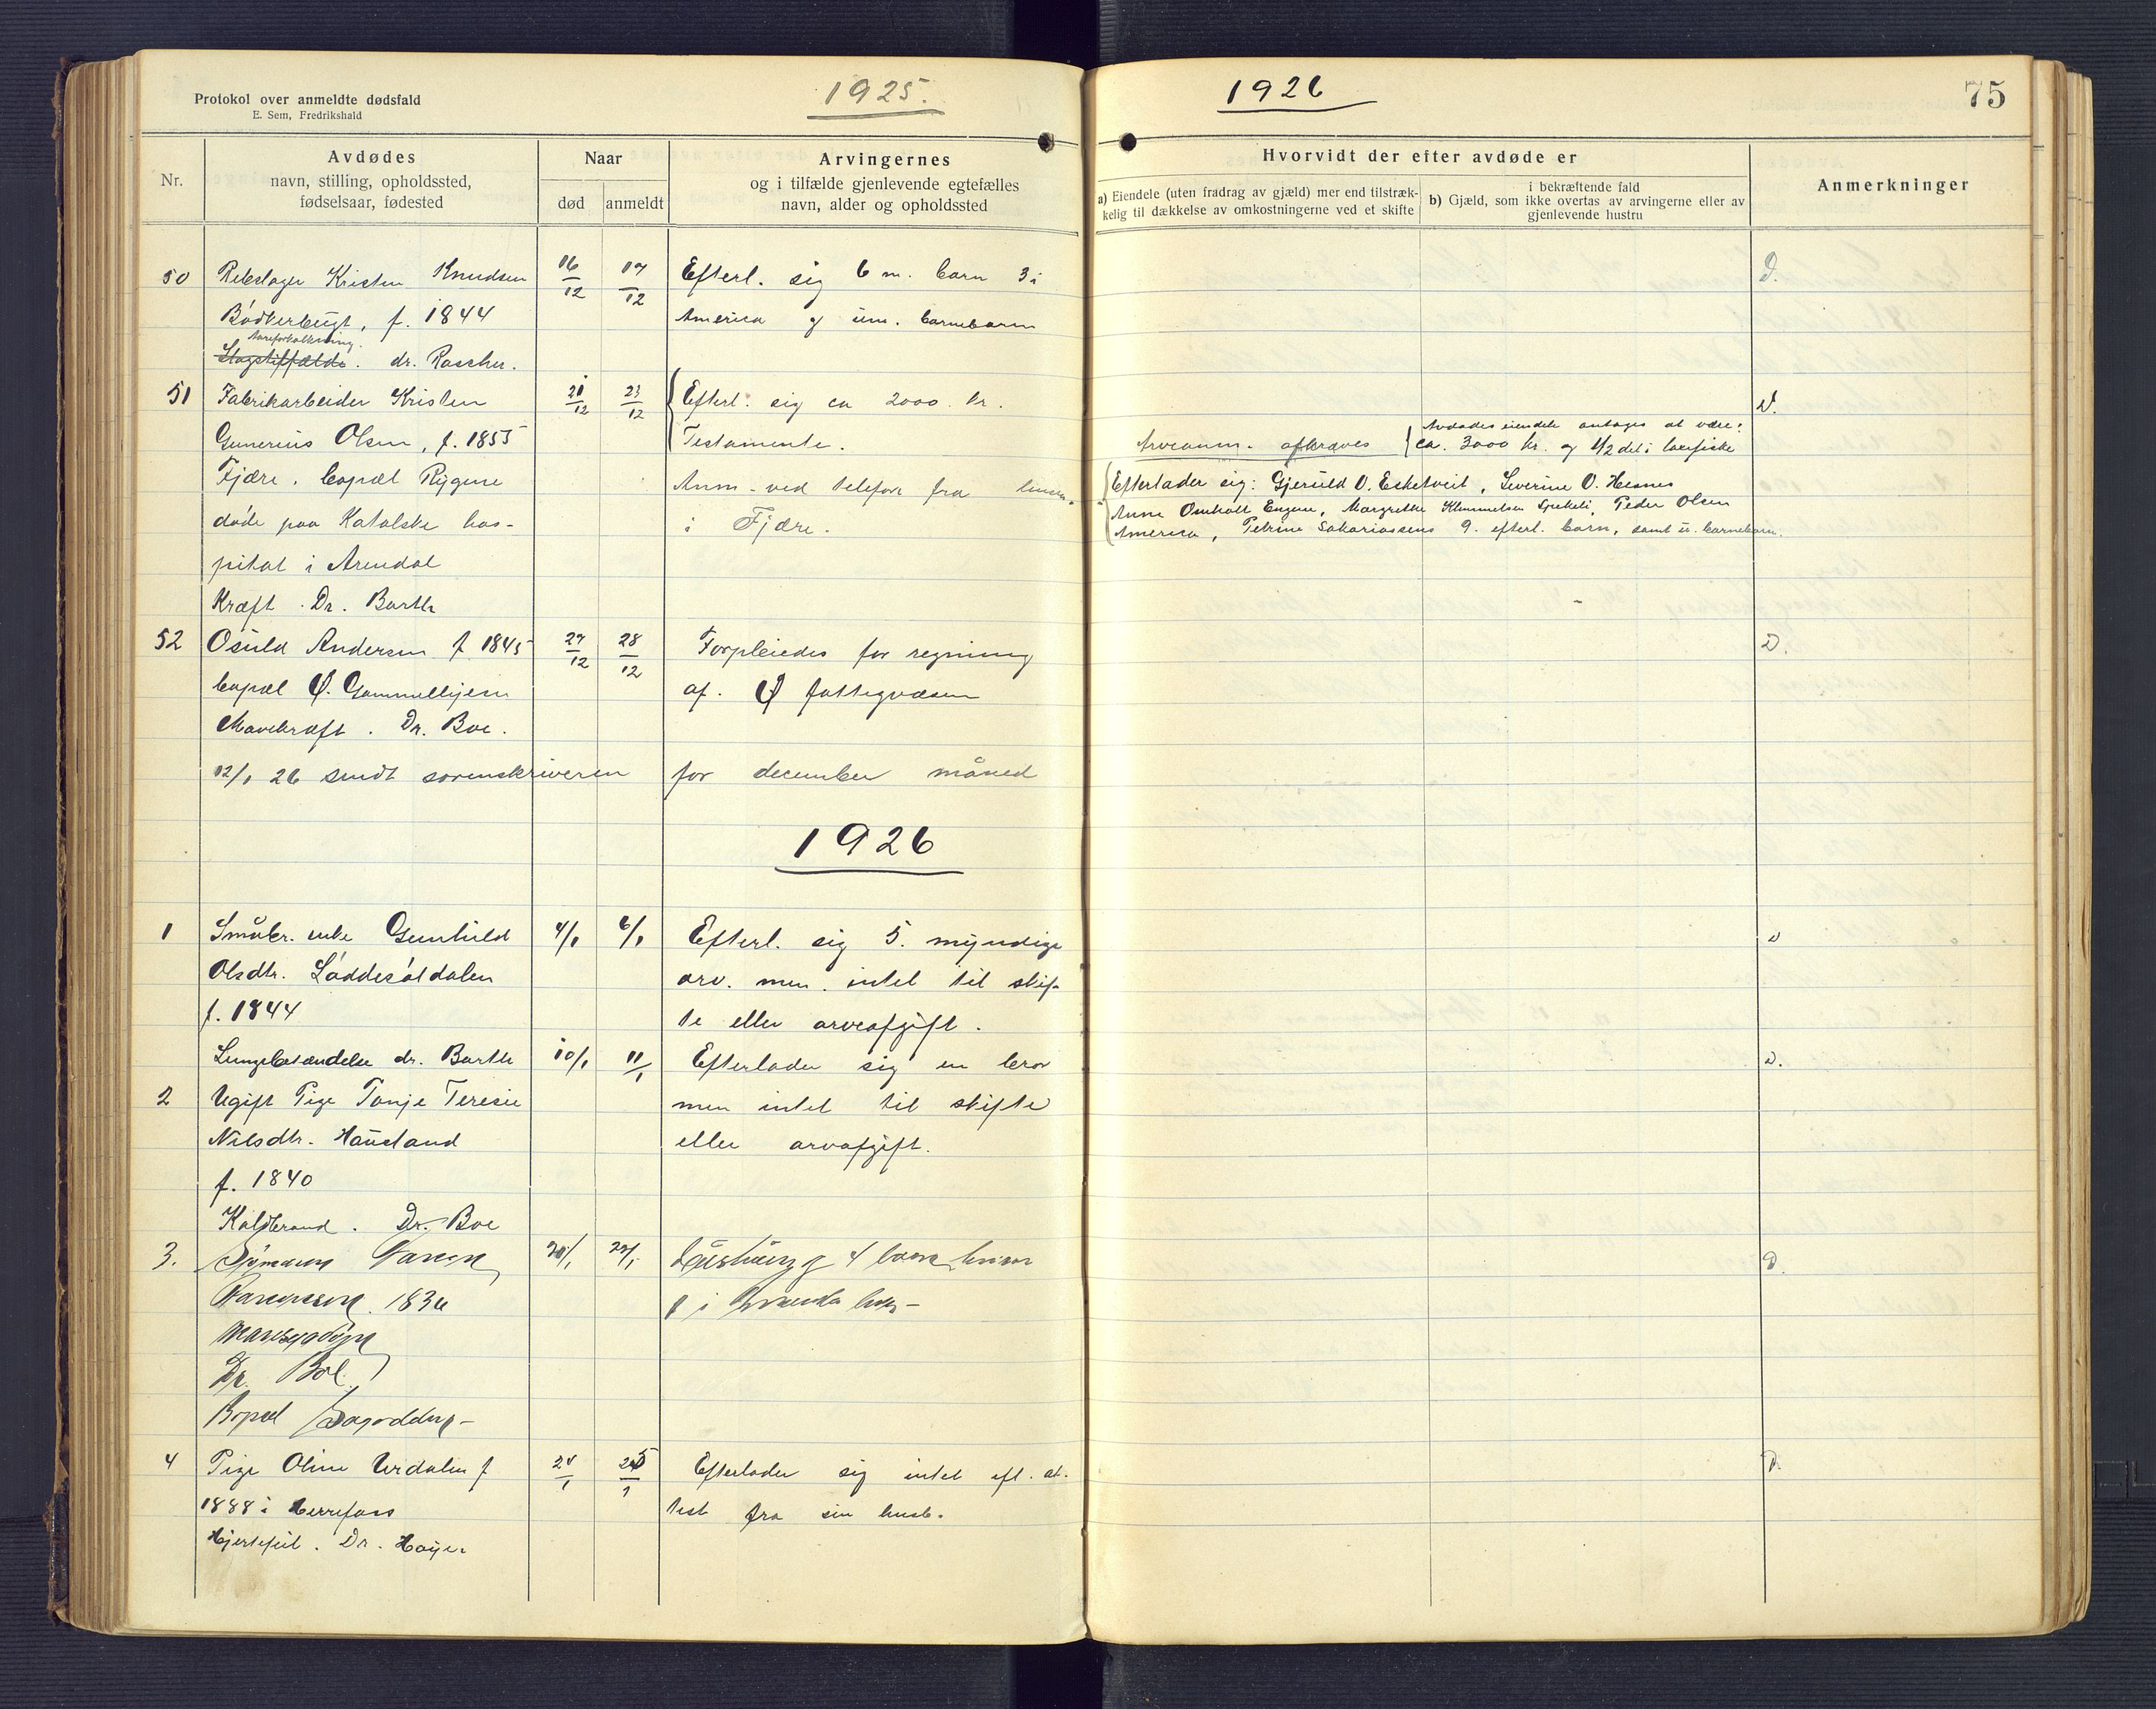 Protokol over anmeldte dødsfald
E. Sem, Fredrikshald
1925.
1926
75
Nr.
Avdødes
navn, stilling, opholdssted,
fødselsaar, fødested
Naar
død
anmeldt
Arvingernes
og i tilfælde gjenlevende egtefælles
navn, alder og opholdssted
Hvorvidt der efter avdøde er
a) Eiendele (uten fradrag av gjæld) mer end tilstræk-
kelig til dækkelse av omkostningerne ved et skifte
i bekræftende fald
b) Gjæld, som ikke overtas av arvingerne eller av
gjenlevende hustru
Anmerkninger
50 Rebslager Kristen Knudsen 16/12 17/12 Efterl. sig 6 m. barn 3 i D.
Bödkerbugt, f. 1844 America og um. barnebarn
Aareforkalkning.
dr. Rascher.
51 Fabrikarbeider Kristen 21/12 23/12 Efterl. sig ca 2000 kr. D.
Gunerius Olsen, f. 1855 Testamente.
Avdødes eiendele antages at være:
Arveanm. afkræves ca. 3000 kr. og 1/2 del i laxefiske
Fjære. bopæl Rygene Anm. ved telefon fra
døde paa Katolske hos- i Fjære.
Efterlader sig: Gjeruld O. Esketveit, Severine O. Hesnes
Anne Omholt Engene, Margrethe Klemmetsen, Peder Olsen
America, Petrine Sakariassens 9. efterl. barn, samt u. barnebarn.
pital i Arendal
Kræft. Dr. Barth
52 Osuld Andersen f 1845 27/12 28/12 Forpleiedes for regning D.
bopæl Ø. Gammelhjem af Ø fattigvæsen
Mavekræft. Dr. Boe.
12/1 26 sendt sorenskriveren for december måned
1926
1 Småbr. enke Gunhild 4/1 6/1 Efterl. sig 5. myndige D
Olsdtr. Løddesøldalen arv. men intet til skif-
f. 1844 te eller arveafgift.
Lungebetændelse dr. Barth 10/1 11/1 Efterlader sig en bror D.
2 Ugift Pige Tonje Teresie men intet til skifte
Nilsdtr. Haugland eller arvafgift.
f. 1840
Koldbrand. Dr. Boe
3. 20/1 22/1 4 barn D.
Dr. Boe.
Bopæl
4 Pige Oline Urdalen f 24/1 25/1 Efterlader sig intet eft. at- D.
1888 i Herrefoss test fra sin husb.
Hjertefeil. Dr. Høyer